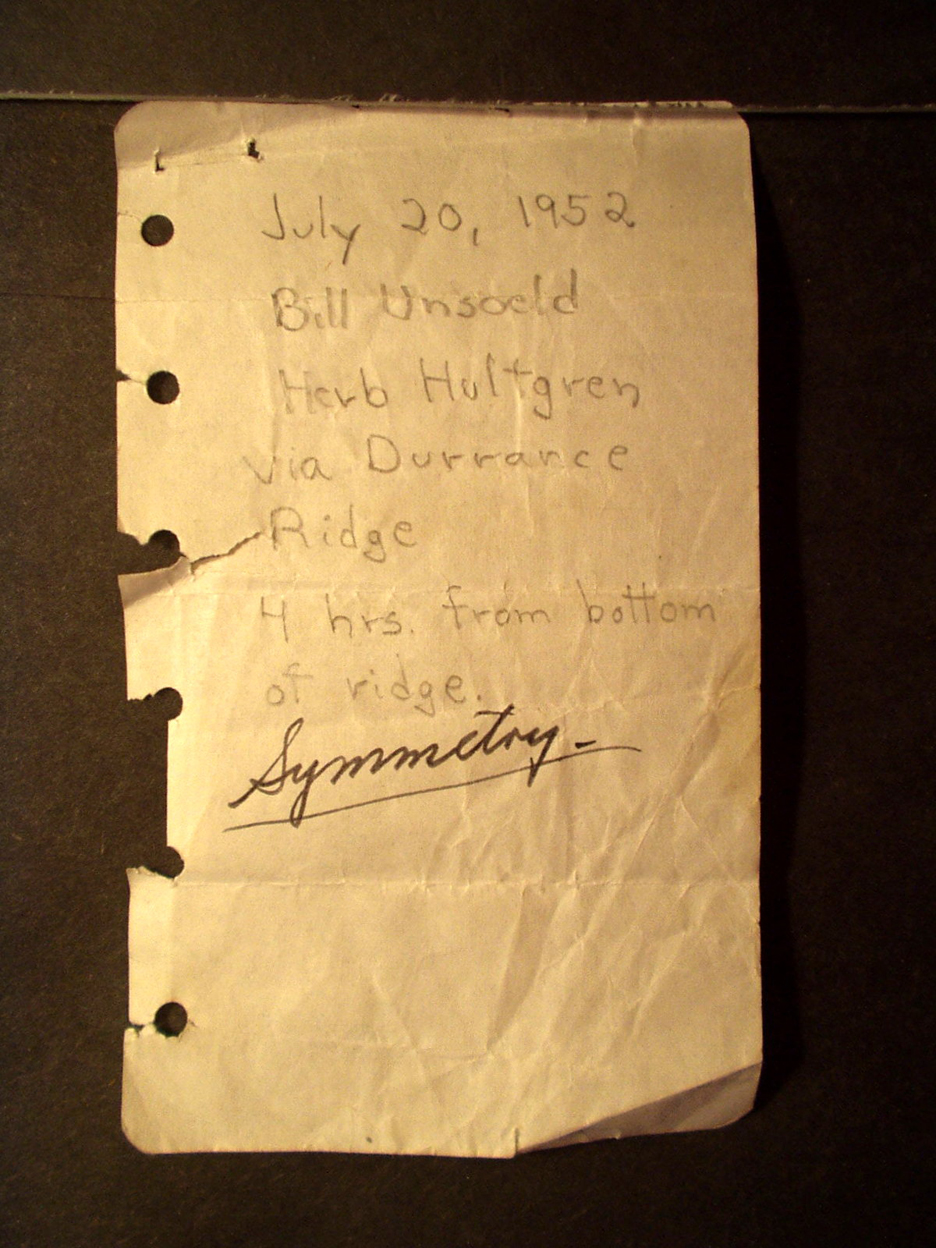 July 20, 1952
Bill Unsoeld
Herb Hultgren
via Durrance
Ridge
4 hrs. from bottom
of ridge.
Symmetry-